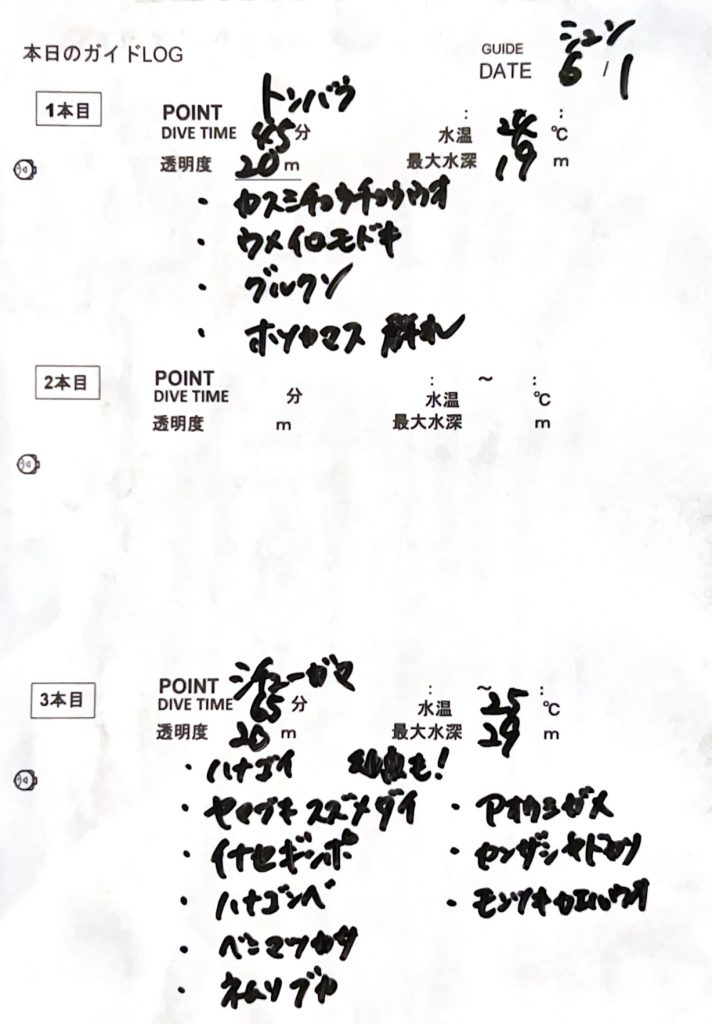 本日のガイドLOG
GUIDE シュン
DATE 6 / 1
1本目
POINT トンバラ
DIVE TIME 45分 : :
水温 ℃
透明度 20m 最大水深 19 m
・カスミチョウチョウウオ
・ウメイロモドキ
・グルクン
・ホソカマス 群れ
2本目
POINT : ～ :
DIVE TIME 分 水温 ℃
透明度 m 最大水深 m
3本目
POINT シチューガマ : ～ :
DIVE TIME 65分 水温 25 ℃
透明度 20 m 最大水深 29 m
・ハナゴイ 幼魚も!
・ヤマブキスズメダイ ・アオウミガメ
・イナセギンポ ・カンザシヤドカリ
・ハナゴンベ ・モンツキカエルウオ
・ベニマツカサ
・ネムリブカ